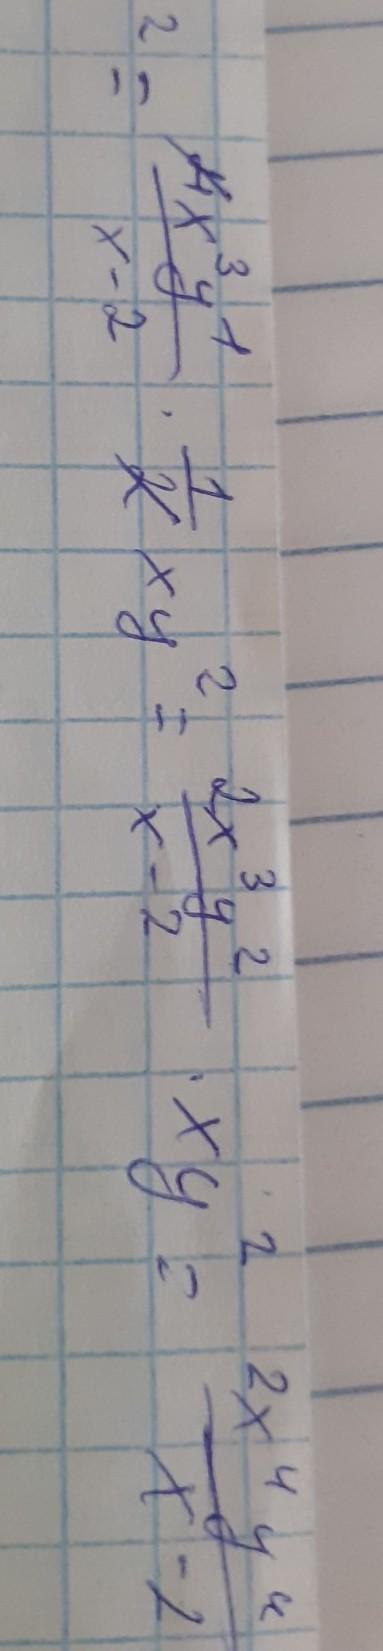 ² = \frac{4x³y¹}{x-2} · \frac{1}{2} xy² = \frac{2x³y²}{x-2} · xy² = \frac{2x⁴y⁴}{x-2}